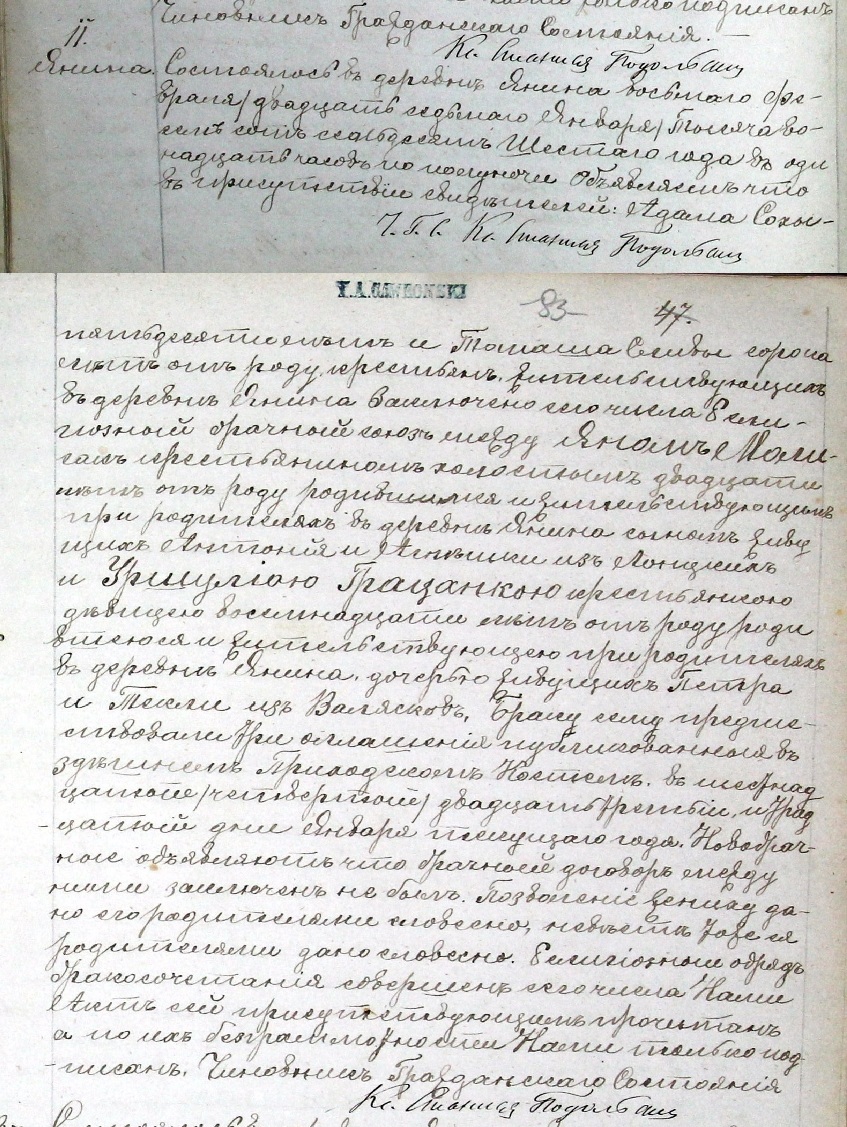 только подписанъ
Чиновникъ Гражданскаго Состоянія.
Кс. Подольбиш
11.
Янина. Состоялось въ деревнѣ Янина восьмаго Фе-
враля /двадцать седьмаго Января/ Тысяча во-
семь сотъ семьдесятъ Шестаго года въ оди
надцать часовъ по полуночи Объявляемъ что
въ присутствіи свидѣтелей: Адама Сохы-
Ч. Г. С. Кс. Подольбиш
83 47.
пятьдесяти лѣтъ и Томаша Сливы сорока
лѣтъ отъ роду крестьян. жительствующихъ
въ деревнѣ Янина Заключено сего числа Рели-
гіозный брачный союзъ между Яномъ Мали-
гакъ крестьяниномъ холостымъ двадцати
лѣтъ отъ роду родившимся и жительствующимъ
при родителяхъ въ деревнѣ Янина сыномъ живу
щихъ Антонія и Агнѣшки изъ
и Уршулею Грацанкою крестьянкою
дѣвицею восемнадцати лѣтъ отъ роду роди
вшеюся и жительствующею при родителяхъ
въ деревнѣ Янина, дочерью живущихъ Петра
и Текли изъ Валясковъ. Браку сему предше-
ствовали три оглашенія публикованныя въ
здѣшнемъ Приходскомъ Костелѣ. въ шестнад
цатый /четвертый/ двадцать третьій, и трид
цатый дни Января текущаго года. Новобрач-
ные объявляютъ что брачный договоръ между
ними заключенъ не былъ. Позволеніе жениху да-
но его родителями словесно, невѣстѣ тоже ея
родителями дано словесно. Религіозный обрядъ
бракосочетанія совершенъ сего числа Нами
Актъ сей присутствующимъ прочитанъ
а по ихъ безграмотности Нами только под
-писанъ. Чиновникъ Гражданскаго Состоянія
Кс. Подольбиш